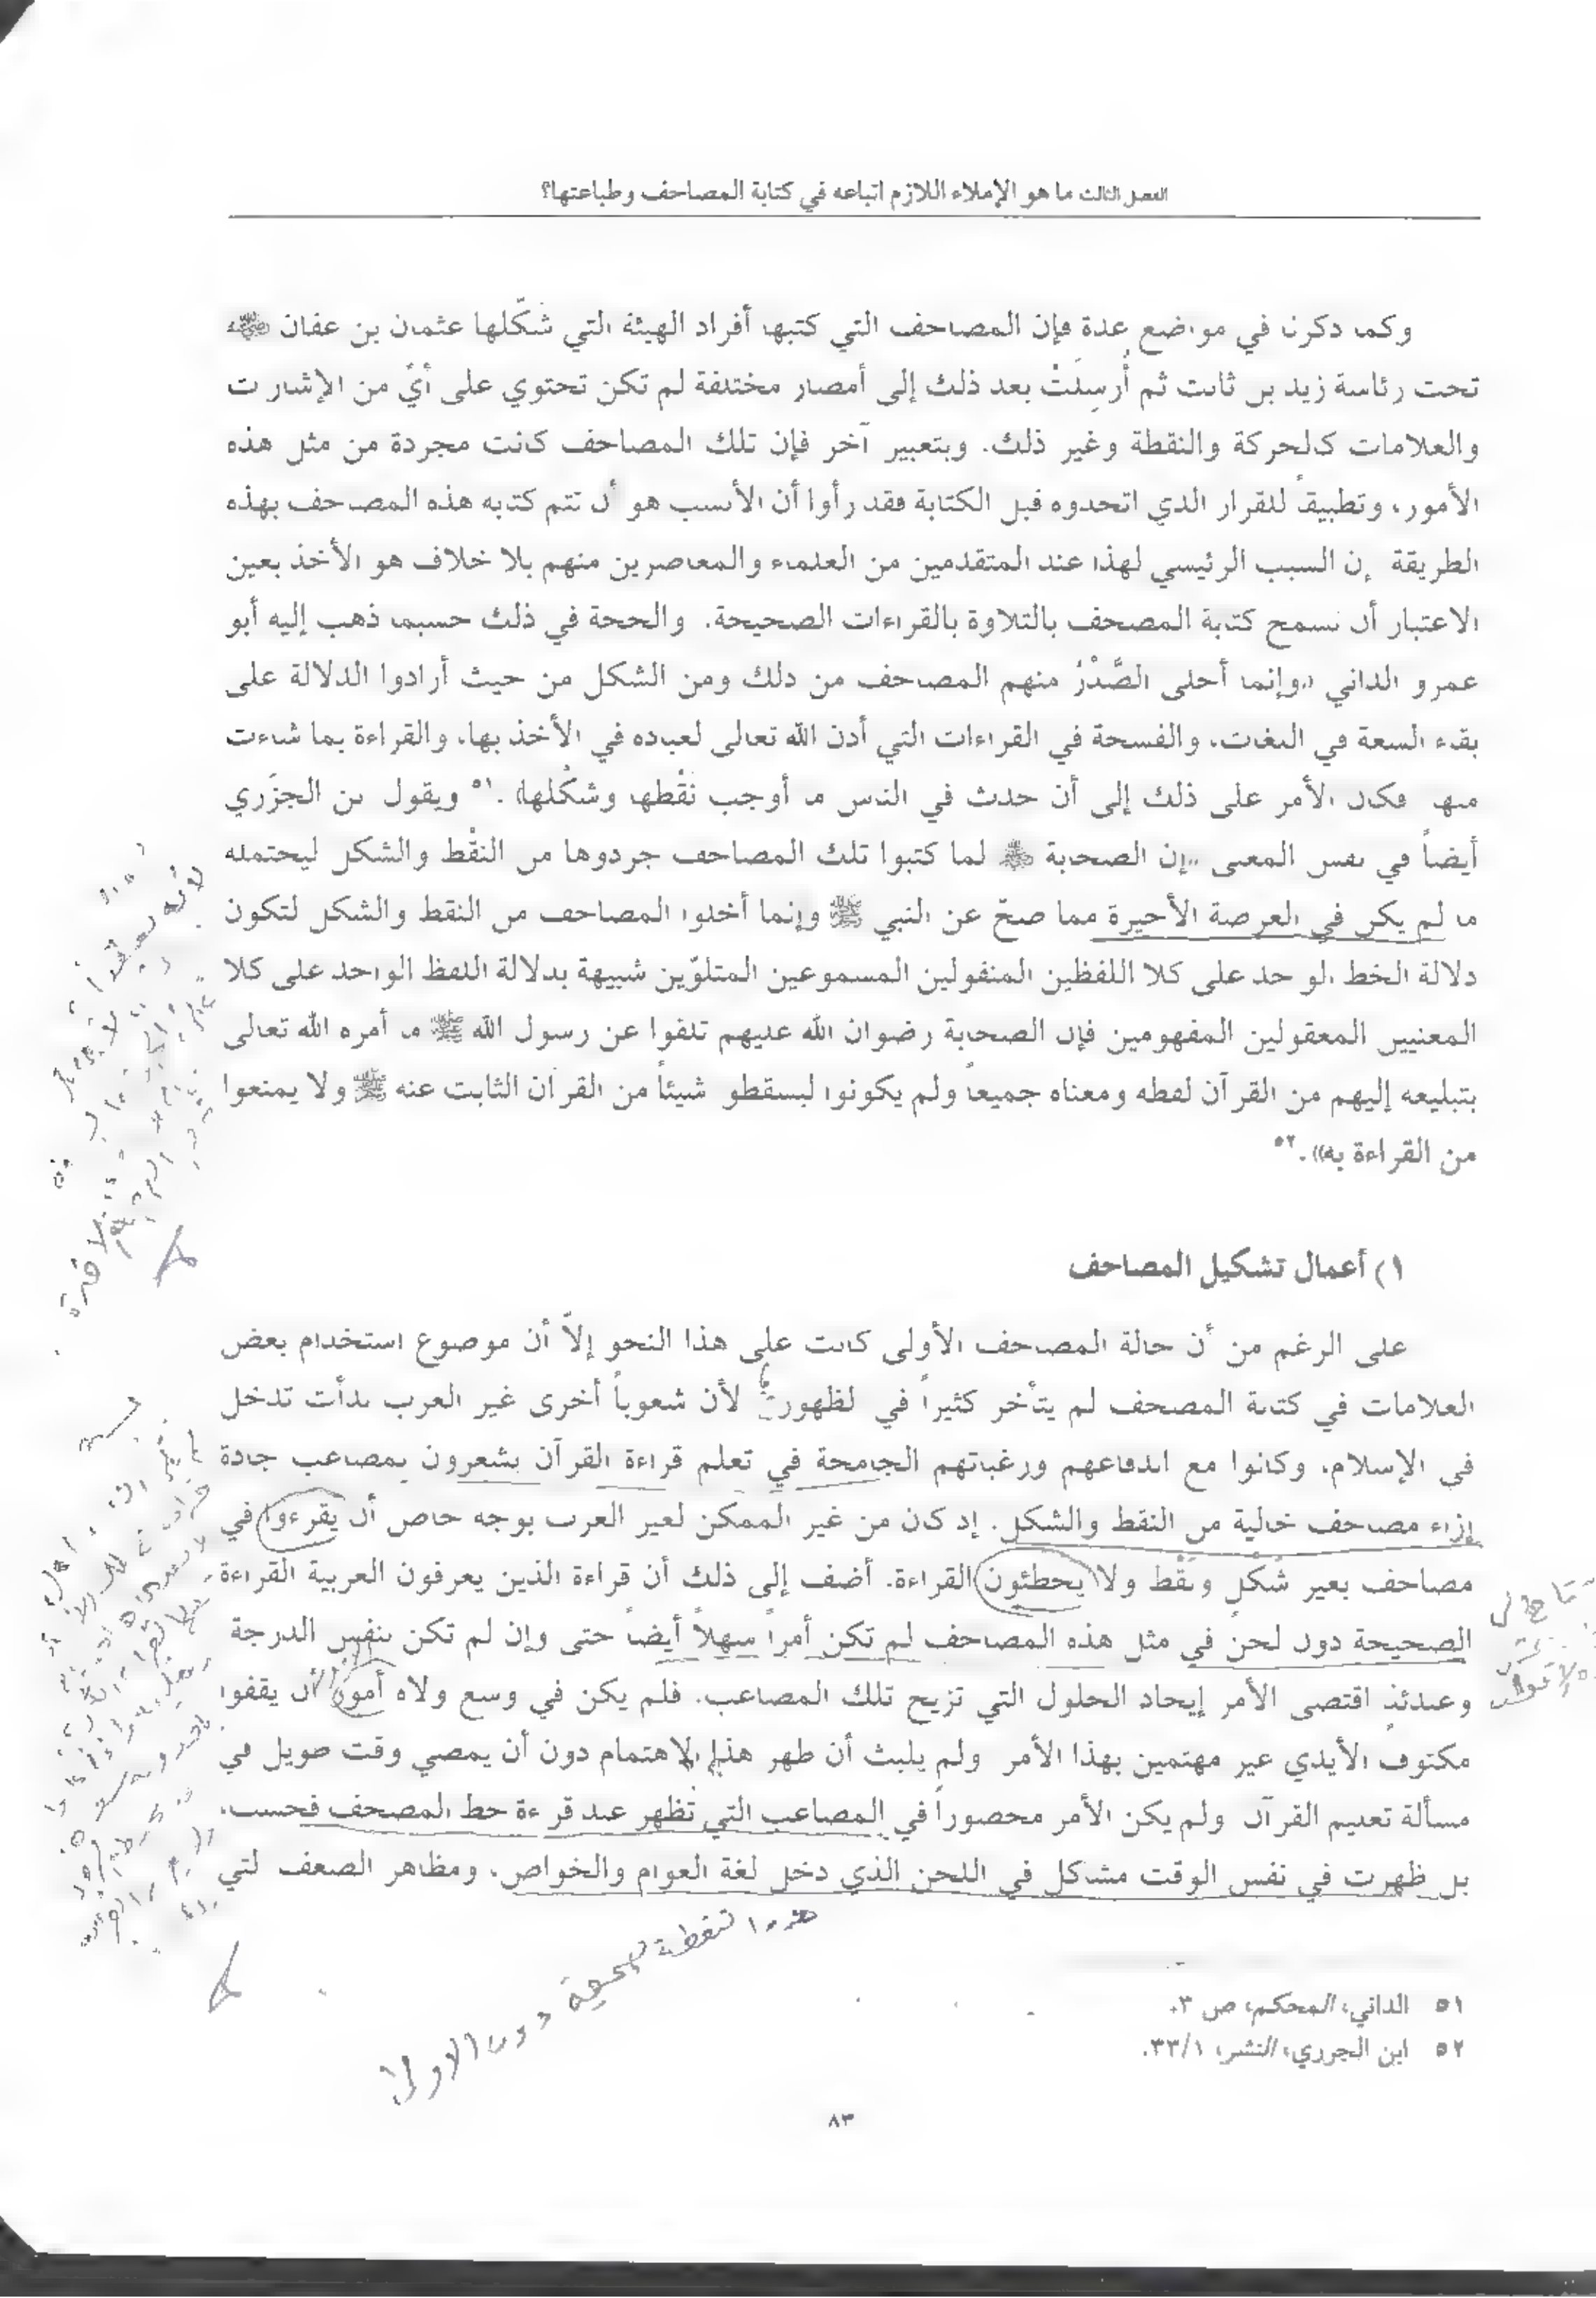 الفصل الثالث ما هو الإملاء اللازم اتباعه في كتابة المصاحف وطباعتها؟
وكما ذكرنا في مواضع عدة فإن المصاحف التي كتبها أفراد الهيئة التي شكّلها عثمان بن عفان ﵁
تحت رئاسة زيد بن ثابت ثم أُرسِلَتْ بعد ذلك إلى أمصار مختلفة لم تكن تحتوي على أيّ من الإشارات
والعلامات كالحركة والنقطة وغير ذلك. وبتعبير آخر فإن تلك المصاحف كانت مجردة من مثل هذه
الأمور، وتطبيقاً للقرار الذي اتخذوه قبل الكتابة فقد رأوا أن الأنسب هو أن تتم كتابه هذه المصاحف بهذه
الطريقة إن السبب الرئيسي لهذا عند المتقدمين من العلماء والمعاصرين منهم بلا خلاف هو الأخذ بعين
الاعتبار أن تسمح كتابة المصحف بالتلاوة بالقراءات الصحيحة. والحجة في ذلك حسبما ذهب إليه أبو
عمرو الداني «وإنما أخلى الصَّدْرُ منهم المصاحف من ذلك ومن الشكل من حيث أرادوا الدلالة على
بقاء السعة في اللغات، والفسحة في القراءات التي أذن الله تعالى لعباده في الأخذ بها، والقراءة بما شاءت
منها فكان الأمر على ذلك إلى أن حدث في الناس ما أوجب نقْطها وشكْلها».٥١ ويقول ابن الجزَري
أيضاً في نفس المعنى «إن الصحابة ﵃ لما كتبوا تلك المصاحف جردوها من النقْط والشكل ليحتمله
ما لم يكن في العرضة الأخيرة مما صحّ عن النبي ﷺ وإنما أخلوا المصاحف من النقط والشكل لتكون
دلالة الخط الواحد على كلا اللفظين المنقولين المسموعين المتلوّين شبيهة بدلالة اللفظ الواحد على كلا
المعنيين المعقولين المفهومين فإن الصحابة رضوان الله عليهم تلقوا عن رسول الله ﷺ ما أمره الله تعالى
بتبليغه إليهم من القرآن لفظه ومعناه جميعاً ولم يكونوا ليسقطوا شيئاً من القرآن الثابت عنه ﷺ ولا يمنعوا
من القراءة به».٥٢
١) أعمال تشكيل المصاحف
على الرغم من أن حالة المصاحف الأولى كانت على هذا النحو إلاّ أن موضوع استخدام بعض
العلامات في كتابة المصحف لم يتأخر كثيراً في الظهور لأن شعوباً أخرى غير العرب بدأت تدخل
في الإسلام، وكانوا مع اندفاعهم ورغباتهم الجامحة في تعلم قراءة القرآن يشعرون بمصاعب جادة
إزاء مصاحف خالية من النقط والشكل. إذ كان من غير الممكن لغير العرب بوجه خاص أن يقرءوا في
مصاحف بغير شَكْلٍ ونَقْط ولا يخطئون القراءة. أضف إلى ذلك أن قراءة الذين يعرفون العربية القراءة
الصحيحة دون لحن في مثل هذه المصاحف لم تكن أمراً سهلاً أيضاً حتى وإن لم تكن بنفس الدرجة
وعندئذٍ اقتضى الأمر إيجاد الحلول التي تزيح تلك المصاعب. فلم يكن في وسع ولاه أمور أن يقفوا
مكتوف الأيدي غير مهتمين بهذا الأمر ولم يلبث أن ظهر هذا الاهتمام دون أن يمضي وقت طويل في
مسألة تعليم القرآن ولم يكن الأمر محصوراً في المصاعب التي تظهر عند قراءة خط المصحف فحسب،
بل ظهرت في نفس الوقت مشاكل في اللحن الذي دخل لغة العوام والخواص، ومظاهر الضعف التي
٥١ الداني، المحكم، ص ٣.
٥٢ ابن الجزري، النشر، ٣٣/١.
٨٣